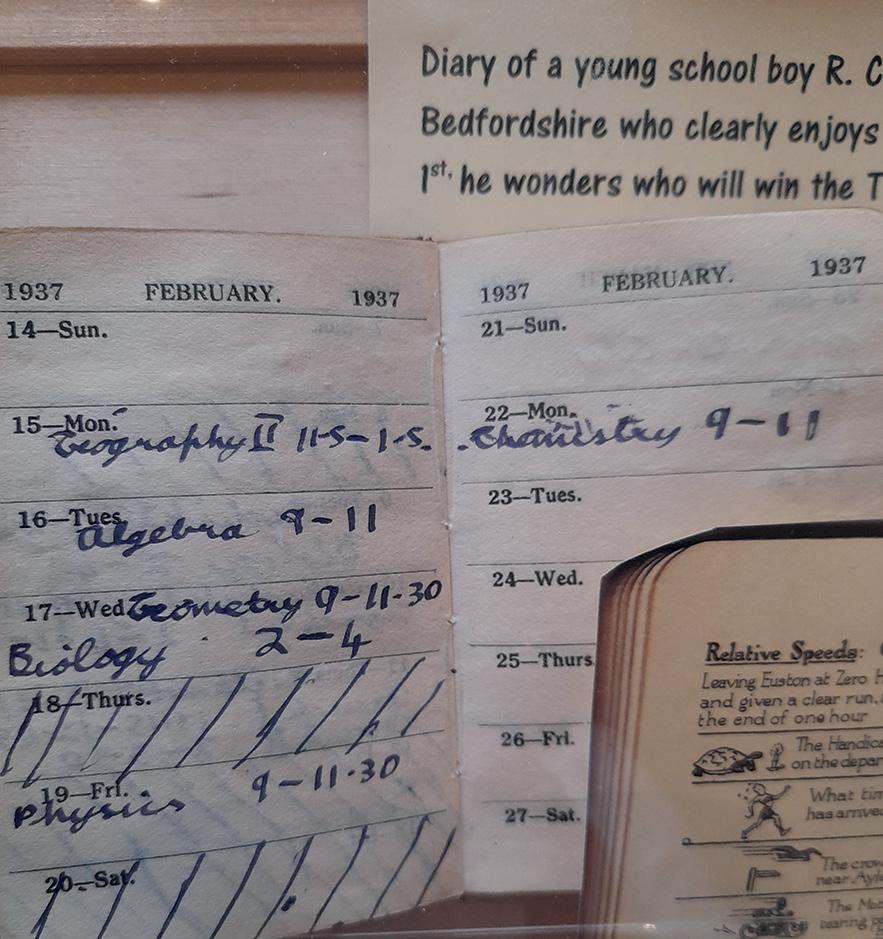 Diary of a young school boy R. C
Bedfordshire who clearly enjoys
1st, he wonders who will win the T
1937 FEBRUARY. 1937
14—Sun.
15—Mon.
Geography II 11-5-1-5.
16—Tues.
Algebra 9-11
17—Wed Geometry 9-11-30
Biology 2-4
18—Thurs.
19—Fri. 9-11.30
Physics
20—Sat.
1937 FEBRUARY. 1937
21—Sun.
22—Mon.
Chemistry 9-11
23—Tues.
24—Wed.
25—Thurs
26—Fri.
27—Sat.
Relative Speeds:
Leaving Euston at Zero H
and given a clear run,
the end of one hour
The Handica
on the depar
What tim
has arrive
The crow
near Ayle
The Mot
tearing